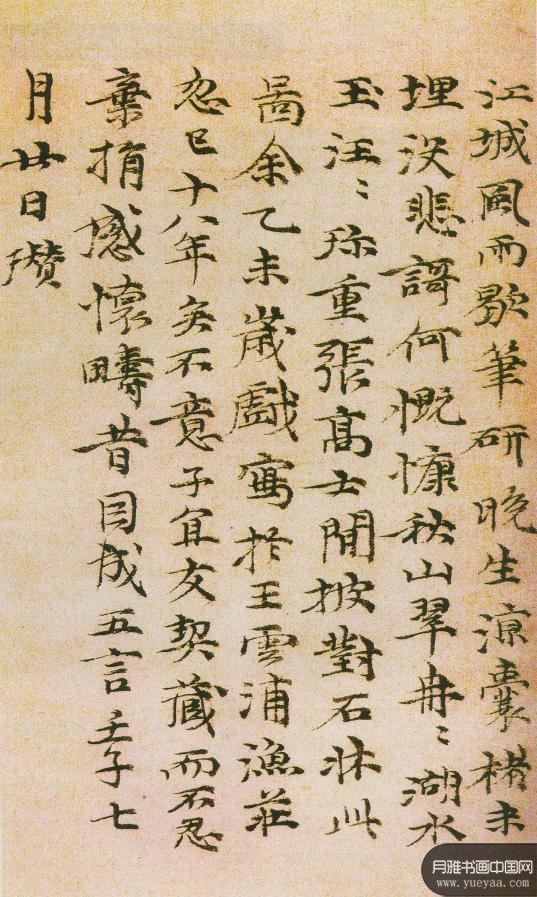 江城風雨歇筆研晚生涼囊楮未
埋没悲謌何慨慷秋山翠冉〻湖水
玉汪〻珎重張高士閒披對石牀此
啚余乙未歲戲寫於王雲浦漁莊
忽已十八年矣不意子宜友契藏而不忍
棄捐感懷疇昔因成五言壬子七
月廿日瓚
月雅书画中国网
www.yueyaa.com